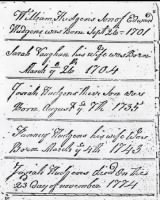 William Hudgens Son of Edward
Hudgens was Born Sept 26 - 1701
Sarah Vaughan his wife was Born
March ye 26 1704
Josiah Hudgens their son was
Born August ye 7th 1735
Nanncy Hudgens his wife Was
Born March ye 4th 1743
Josiah Hudgens died on the
23 day of november 1774